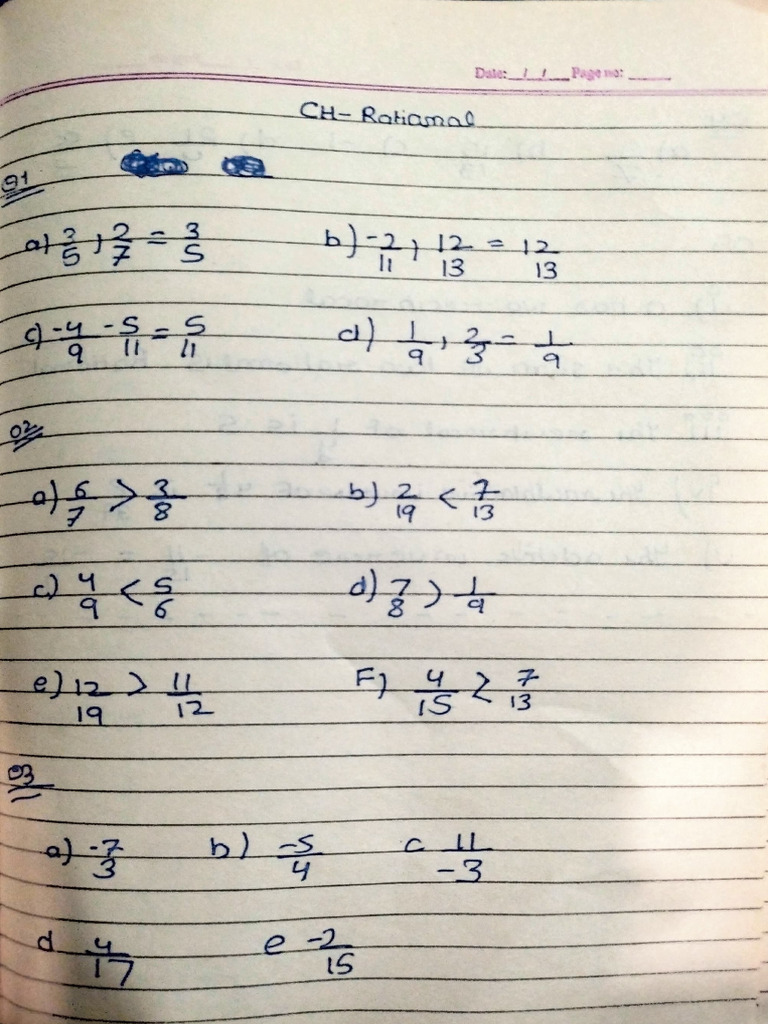 Date: / / Page no:
CH- Rational
Q1
a) 3/5, 2/7 = 3/5 b) -2/11, 12/13 = 12/13
c) -4/9 -5/11 = 5/11 d) 1/9, 2/3 = 1/9
Q2
a) 6/7 > 3/8 b) 2/19 < 7/13
c) 4/9 < 5/6 d) 7/8 > 1/9
e) 12/19 > 11/12 F) 4/15 > 7/13
Q3
a) -7/3 b) -5/4 c 11/-3
d 4/17 e -2/15